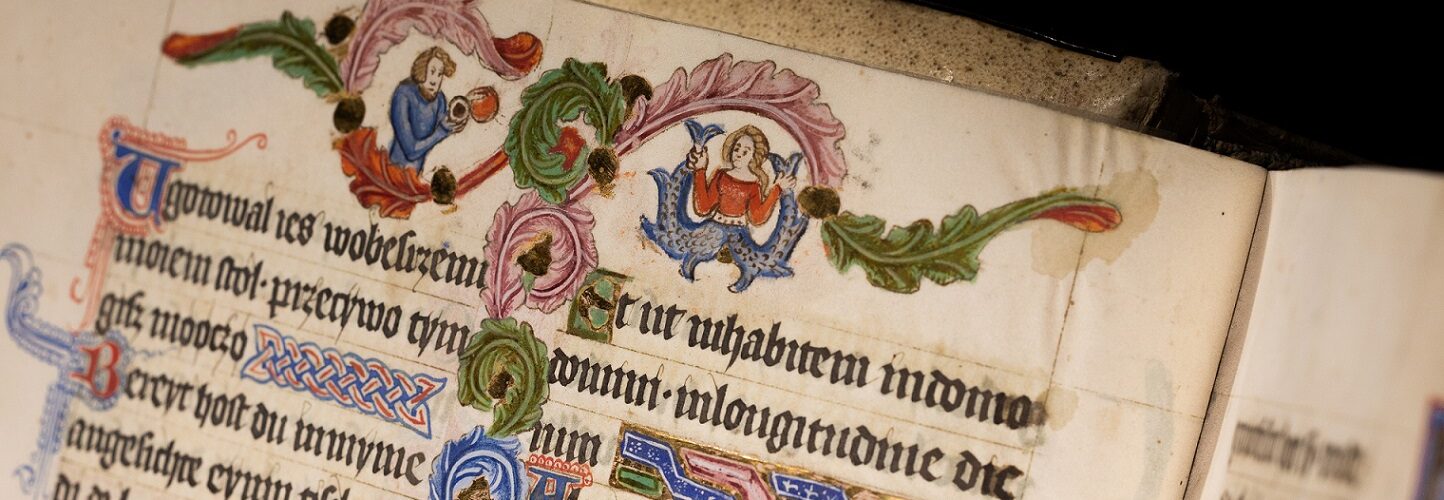 Ugotowal ies wobesrzenu
moiem stol· przecywo tym
gisz mooczo
Bereyt host du in myme
angesichte eynen
Et ut inhabitem indomo
domini· inlongitudine die
rum